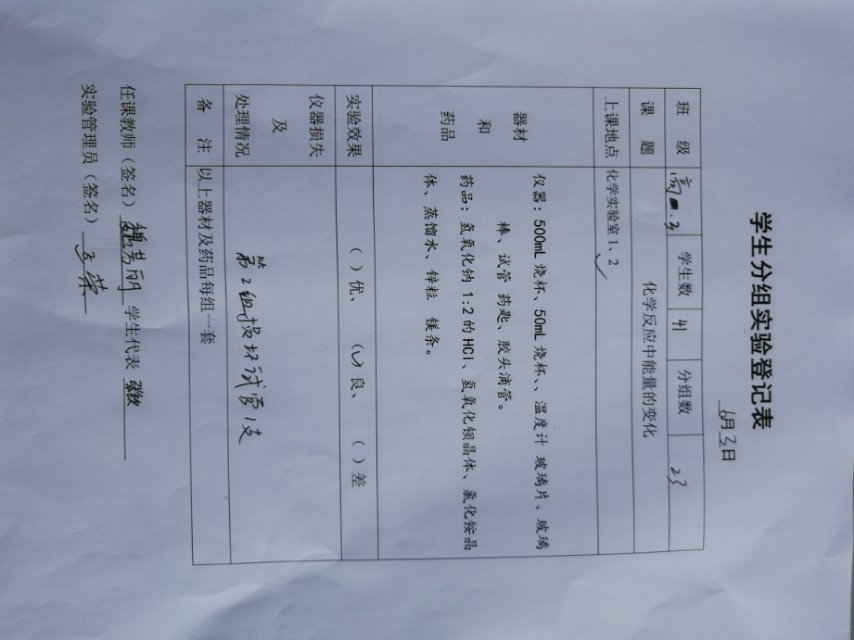 学生分组实验登记表
6月3日
班 级 高一.3 学生数 41 分组数 23
课 题 化学反应中能量的变化
上课地点 化学实验室1、2 ✓
器材
和
药品
仪器：500mL 烧杯、50mL 烧杯、、温度计 玻璃片、玻璃
棒、试管 药匙、胶头滴管。
药品：氢氧化钠 1:2 的 HCl、氢氧化钡晶体、氯化铵晶
体、蒸馏水、锌粒 镁条。
实验效果 （ ）优、 （✓）良、 （ ）差
仪器损失
及
处理情况
第2组损坏试管1支
备 注 以上器材及药品每组一套
任课教师（签名） 学生代表
实验管理员（签名） 王荣